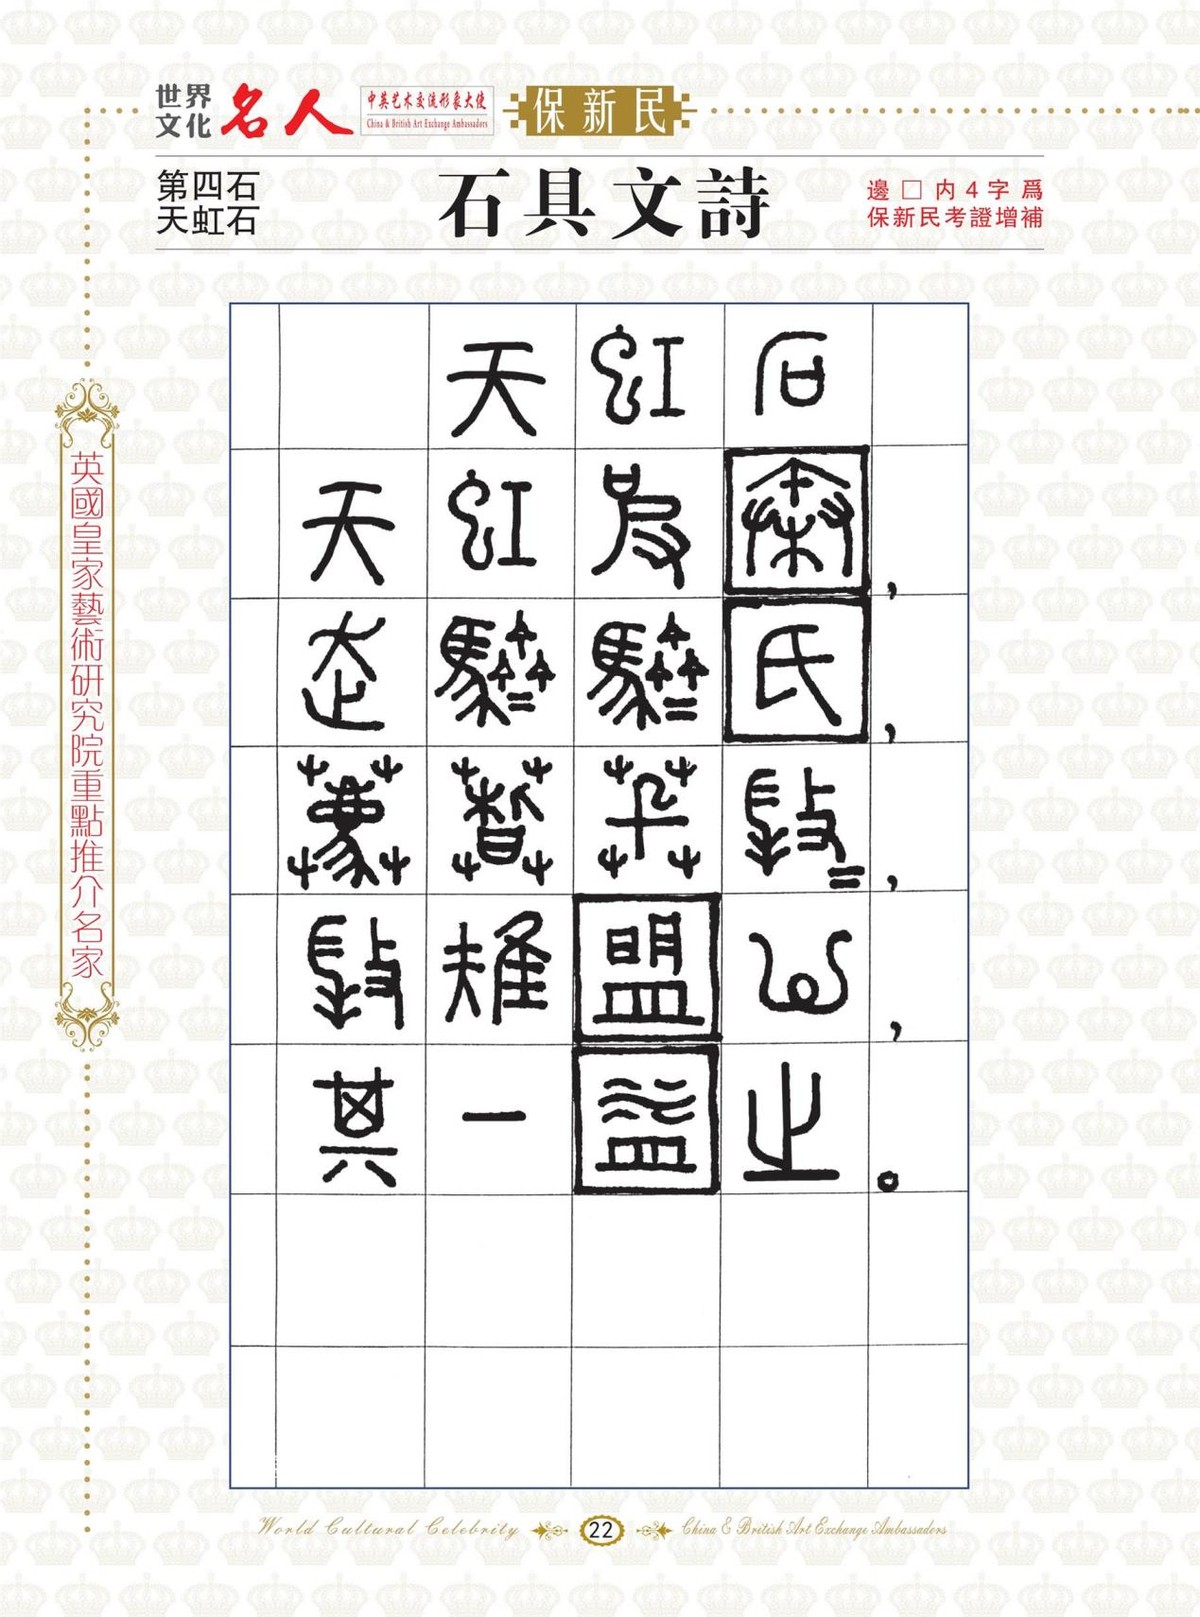 世界
文化
名人
中英艺术交流形象大使
China & British Art Exchange Ambassadors
保新民
第四石
天虹石
石具文詩
邊□内4字爲
保新民考證增補
英國皇家藝術研究院重點推介名家
天虹石
天虹皮,
走氏,
雉盟心,
其一之。
World Cultural Celebrity
22
China & British Art Exchange Ambassadors